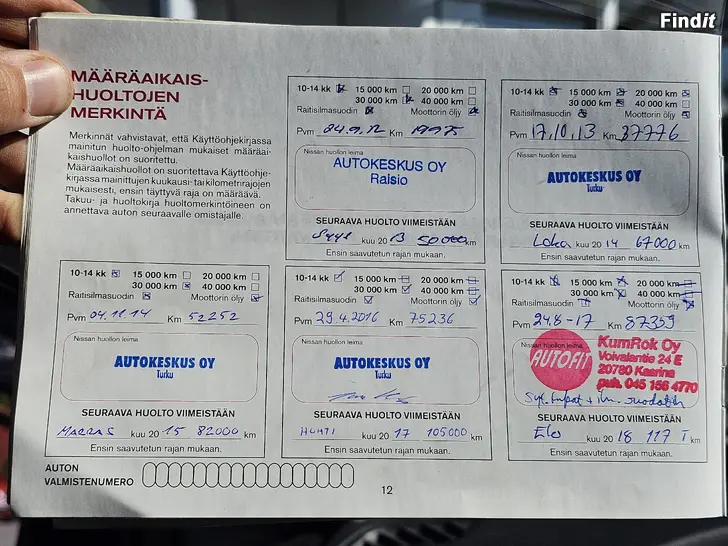 Findit
MÄÄRÄAIKAIS-
HUOLTOJEN
MERKINTÄ
Merkinnät vahvistavat, että Käyttöohjekirjassa
mainitun huolto-ohjelman mukaiset määräai-
kaishuollot on suoritettu.
Määräaikaishuollot on suoritettava Käyttöohje-
kirjassa mainittujen kuukausi- tai kilometrirajojen
mukaisesti, ensin täyttyvä raja on määräävä.
Takuu- ja huoltokirja huoltomerkintöineen on
annettava auton seuraavalle omistajalle.
10-14 kk 15 000 km 20 000 km
30 000 km 40 000 km
Raitisilmasuodin Moottorin öljy
Pvm 04.9.12 Km 19975
Nissan huollon leima
AUTOKESKUS OY
Raisio
SEURAAVA HUOLTO VIIMEISTÄÄN
Syys kuu 2013 50000 km
Ensin saavutetun rajan mukaan.
10-14 kk 15 000 km 20 000 km
30 000 km 40 000 km
Raitisilmasuodin Moottorin öljy
Pvm 17.10.13 Km 37776
Nissan huollon leima
AUTOKESKUS OY
Turku
SEURAAVA HUOLTO VIIMEISTÄÄN
Loka kuu 2014 67000 km
Ensin saavutetun rajan mukaan.
10-14 kk 15 000 km 20 000 km
30 000 km 40 000 km
Raitisilmasuodin Moottorin öljy
Pvm 04.11.14 Km 52252
Nissan huollon leima
AUTOKESKUS OY
Turku
SEURAAVA HUOLTO VIIMEISTÄÄN
MARRAS kuu 2015 82000 km
Ensin saavutetun rajan mukaan.
10-14 kk 15 000 km 20 000 km
30 000 km 40 000 km
Raitisilmasuodin Moottorin öljy
Pvm 29.4.2016 Km 75236
Nissan huollon leima
AUTOKESKUS OY
Turku
SEURAAVA HUOLTO VIIMEISTÄÄN
HUHTI kuu 2017 105000 km
Ensin saavutetun rajan mukaan.
10-14 kk 15 000 km 20 000 km
30 000 km 40 000 km
Raitisilmasuodin Moottorin öljy
Pvm 24.8-17 Km 87359
Nissan huollon leima
AUTOFIT
KumRok Oy
Voivalantie 24 E
20780 Kaarina
puh. 045 156 4770
SEURAAVA HUOLTO VIIMEISTÄÄN
Elo kuu 2018 117 T km
Ensin saavutetun rajan mukaan.
AUTON
VALMISTENUMERO
12